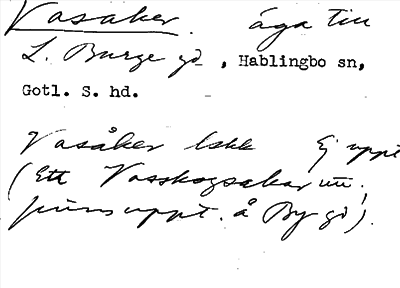 Vasaker. äga till
L. Burge gd, Hablingbo sn,
Gotl. S. hd.
Vasåker Lskk Ej uppt
(Ett Vasskogsakar
finns uppt. å By gd).